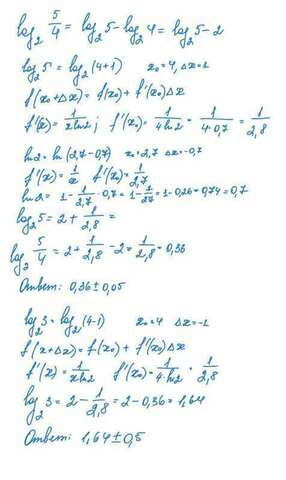 log₂ 5/4 = log₂5 - log₂4 = log₂5 - 2
log₂5 = log₂(4+1) x₀=4, Δx=1
f(x₀+Δx) = f(x₀) + f'(x₀)Δx
f'(x) = 1/(x ln2); f'(x₀) = 1/(4 ln2) = 1/(4·0,7) = 1/2,8
ln2 = ln(2,7-0,7) x₀=2,7 Δx=-0,7
f'(x) = 1/x f'(x₀) = 1/2,7
ln2 = 1 - 1/2,7 · 0,7 = 1 - 7/27 = 1-0,26 = 0,74 = 0,7
log₂5 = 2 + 1/2,8 =
log₂ 5/4 = 2 + 1/2,8 - 2 = 1/2,8 = 0,36
Ответ: 0,36 ± 0,05
log₂3 = log₂(4-1) x₀=4 Δx=-1
f(x+Δx) = f(x₀) + f'(x₀)Δx
f'(x) = 1/(x ln2) f'(x₀) = 1/(4·ln2) = 1/2,8
log₂3 = 2 - 1/2,8 = 2 - 0,36 = 1,64
Ответ: 1,64 ± 0,5